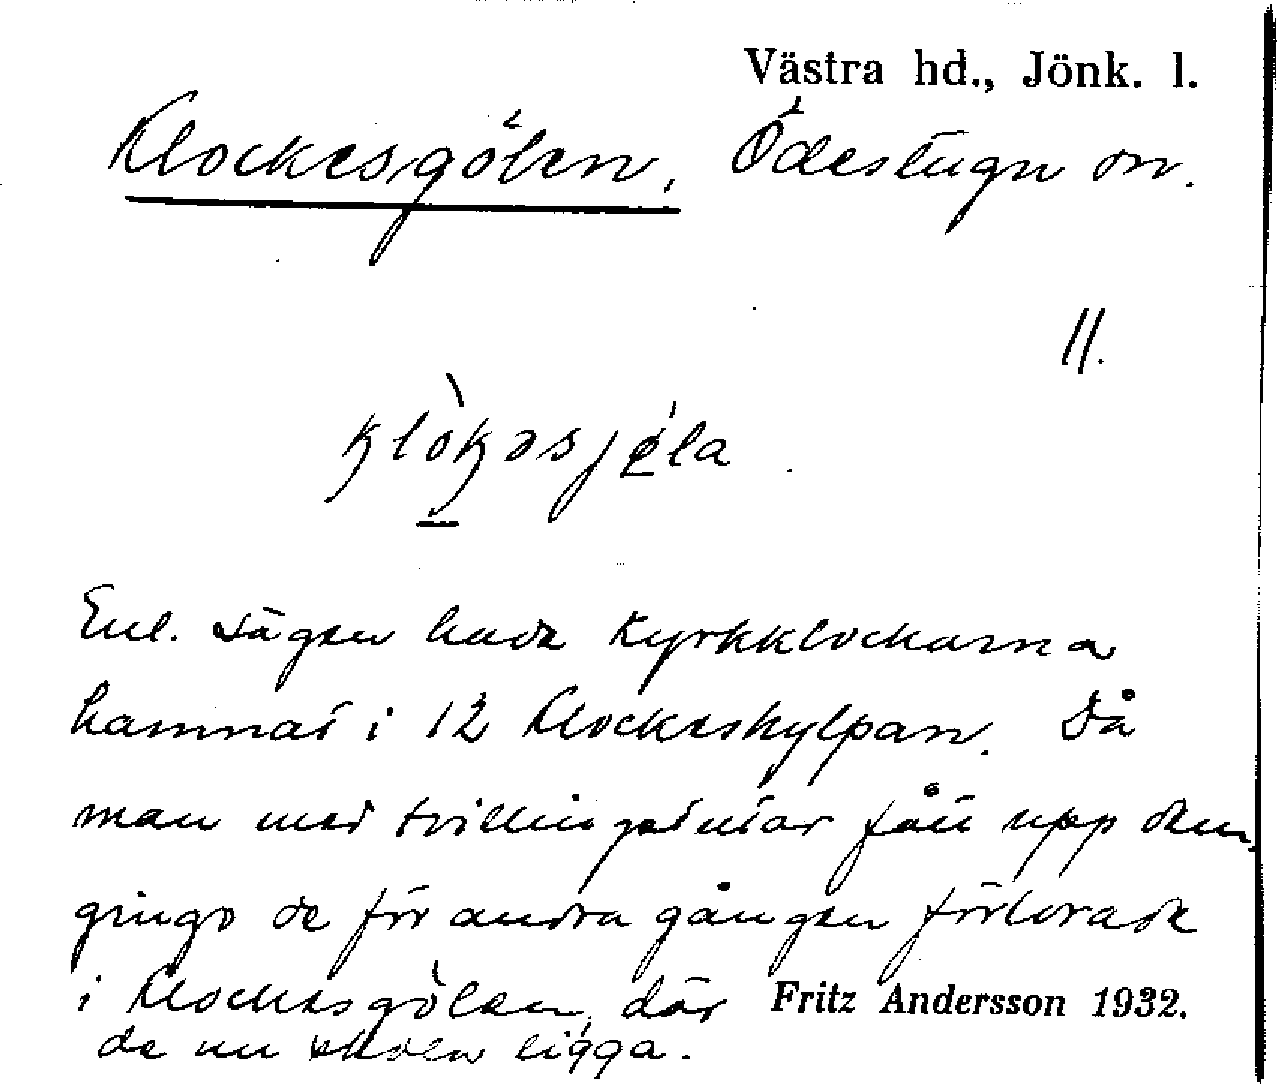 Västra hd., Jönk. l.
Klockesgölen. Ödestugu sn.
11.
klòkəsjøla
Enl. sägen hade kyrkklockorna
hamnat i 12 Klockeshylpan. Då
man med tvillingstutar fått upp dem,
gingo de för andra gången förlorade
i Klockesgölen, där Fritz Andersson 1932.
de nu skola ligga.